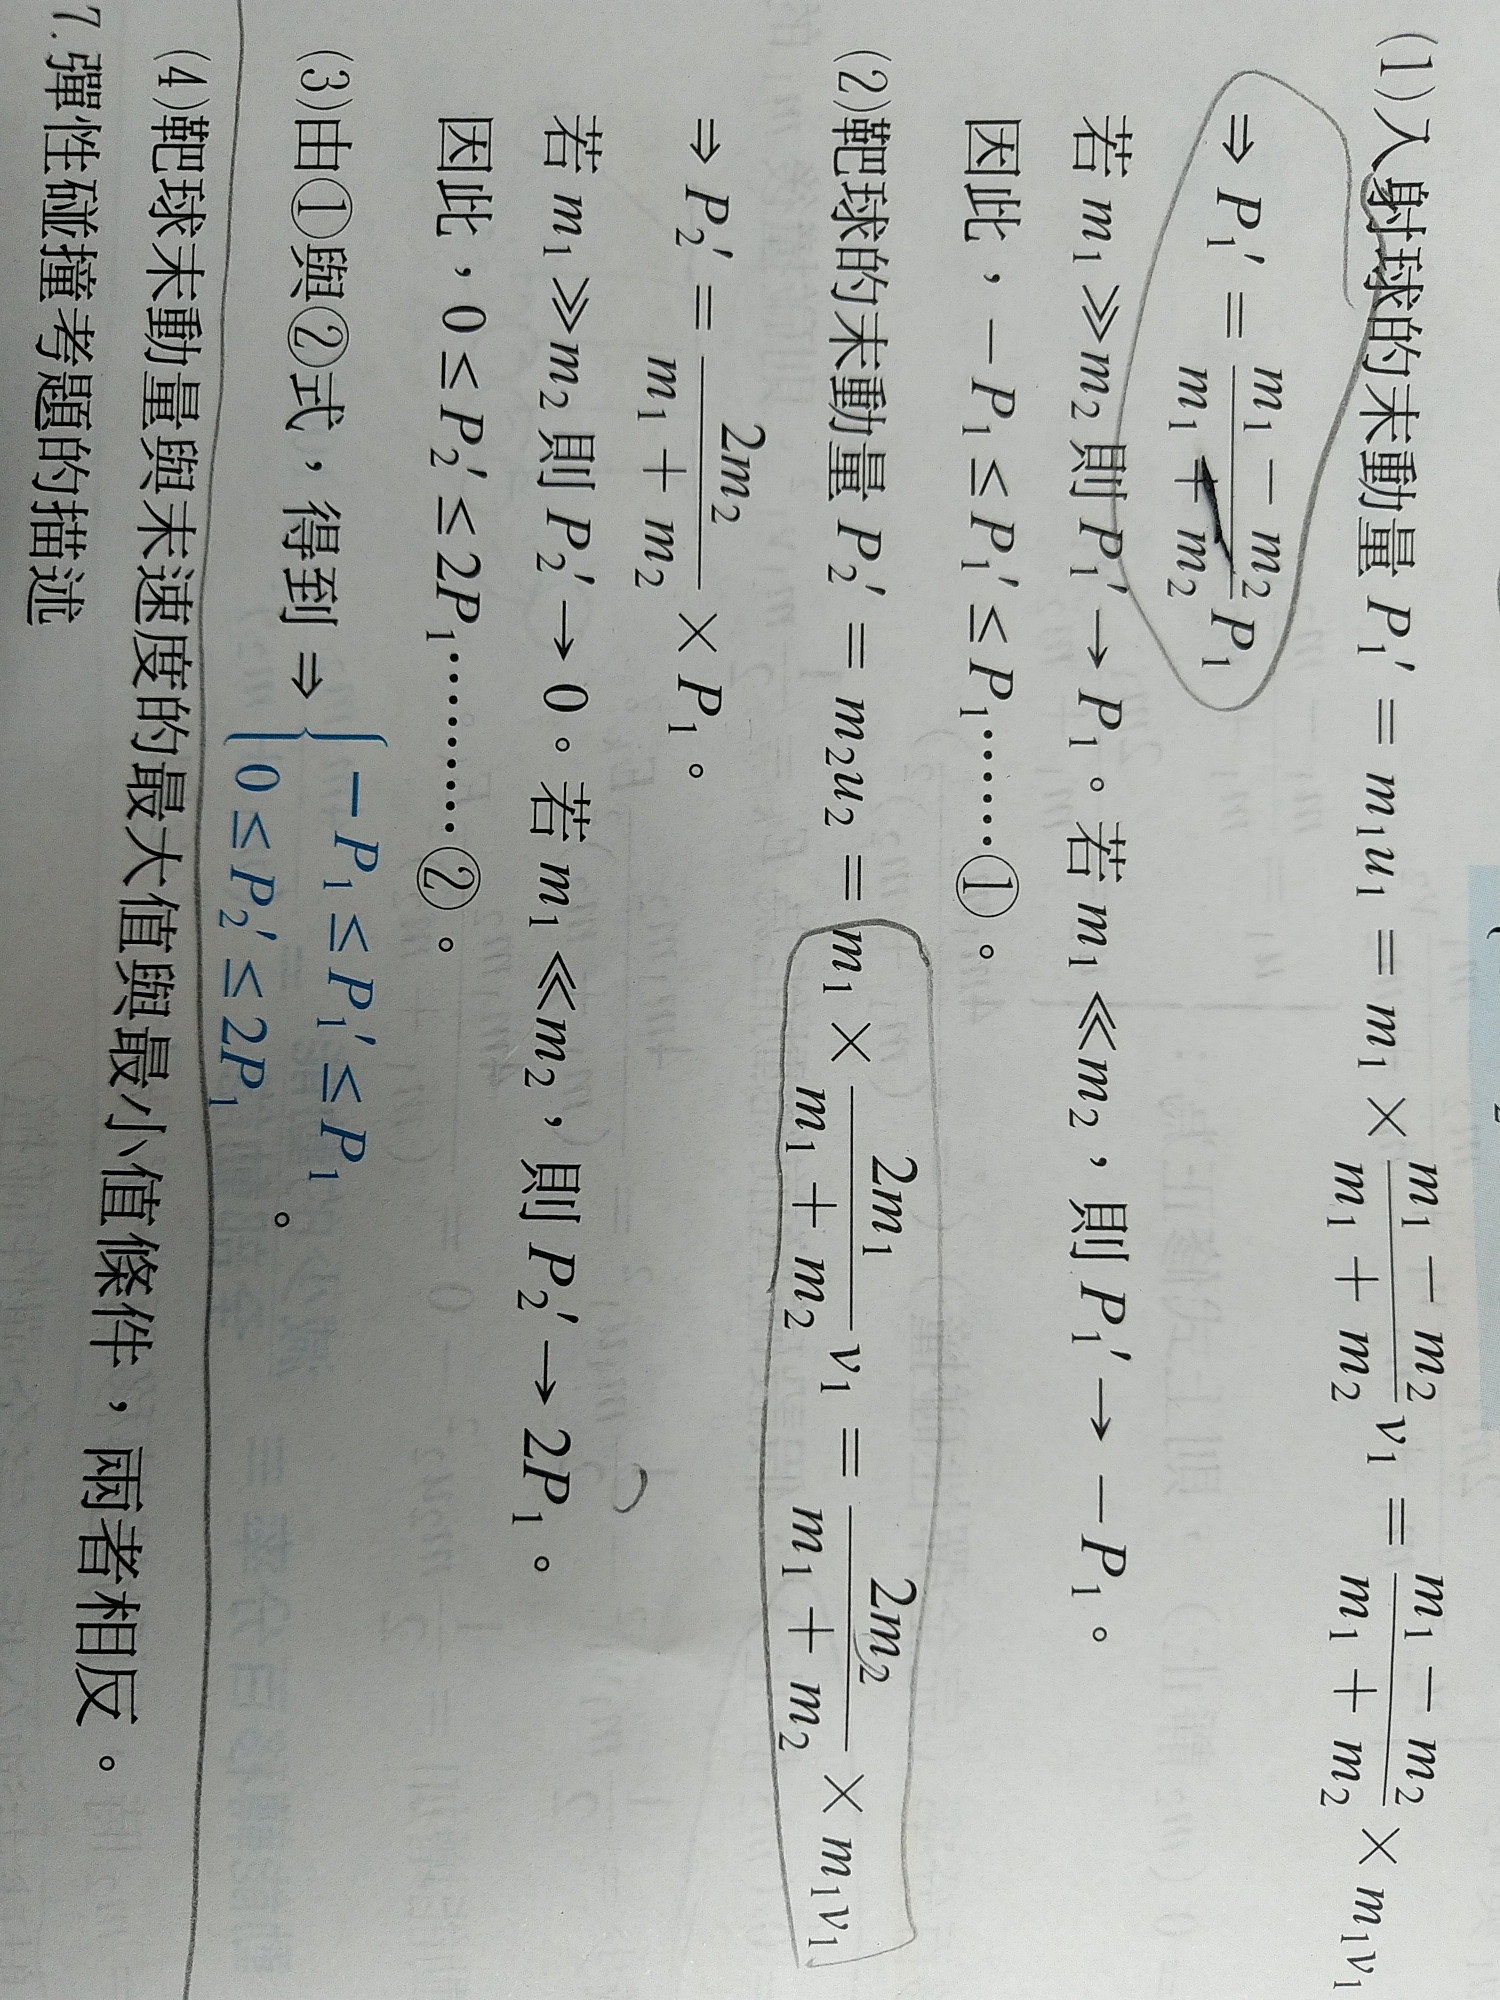 (1)入射球的末動量 P₁′ = m₁u₁ = m₁ × (m₁ − m₂)/(m₁ + m₂) v₁ = (m₁ − m₂)/(m₁ + m₂) × m₁v₁
⇒ P₁′ = (m₁ − m₂)/(m₁ + m₂) P₁
若 m₁ ≫ m₂ 則 P₁′ → P₁。若 m₁ ≪ m₂，則 P₁′ → − P₁。
因此，− P₁ ≤ P₁′ ≤ P₁……①。
(2)靶球的末動量 P₂′ = m₂u₂ = m₁ × 2m₁/(m₁ + m₂) v₁ = 2m₂/(m₁ + m₂) × m₁v₁
⇒ P₂′ = 2m₂/(m₁ + m₂) × P₁。
若 m₁ ≫ m₂ 則 P₂′ → 0。若 m₁ ≪ m₂，則 P₂′ → 2P₁。
因此，0 ≤ P₂′ ≤ 2P₁………②。
(3)由①與②式，得到 ⇒ { − P₁ ≤ P₁′ ≤ P₁
0 ≤ P₂′ ≤ 2P₁ 。
(4)靶球末動量與末速度的最大值與最小值條件，兩者相反。
7.彈性碰撞考題的描述